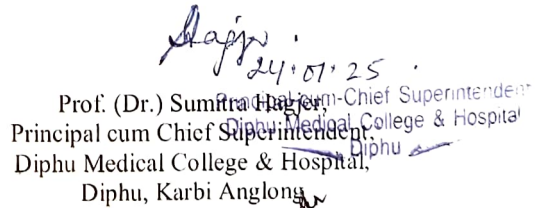 Hagjer
24.01.25
Prof. (Dr.) Sumitra Hagjer,
Principal cum Chief Superintendent,
Diphu Medical College & Hospital,
Diphu, Karbi Anglong
Principal-cum-Chief Superintendent
Diphu Medical College & Hospital
Diphu